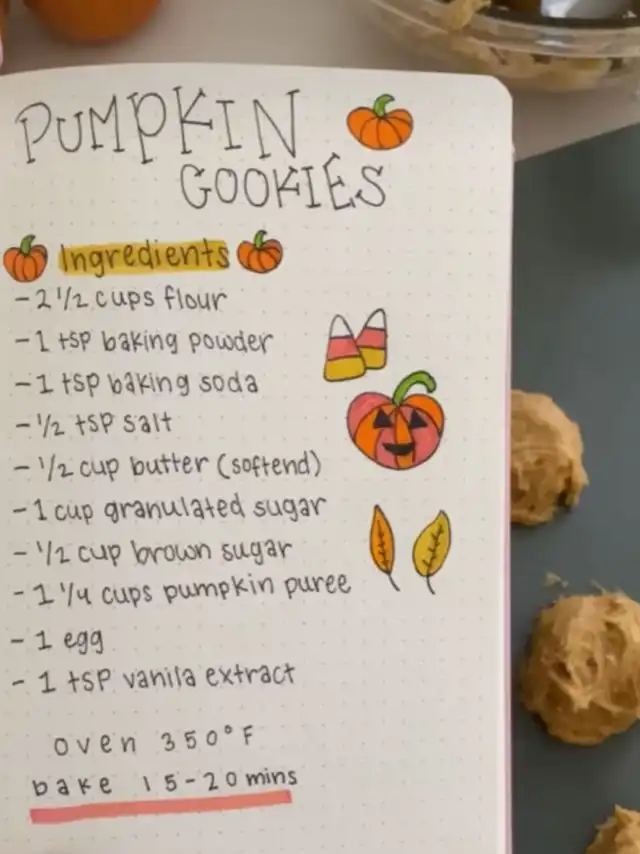 PUMPKIN
COOKIES
Ingredients
- 2 1/2 cups flour
- 1 tsp baking powder
- 1 tsp baking soda
- 1/2 tsp salt
- 1/2 cup butter (softend)
- 1 cup granulated sugar
- 1/2 cup brown sugar
- 1 1/4 cups pumpkin puree
- 1 egg
- 1 tsp vanila extract
oven 350°F
bake 15-20 mins